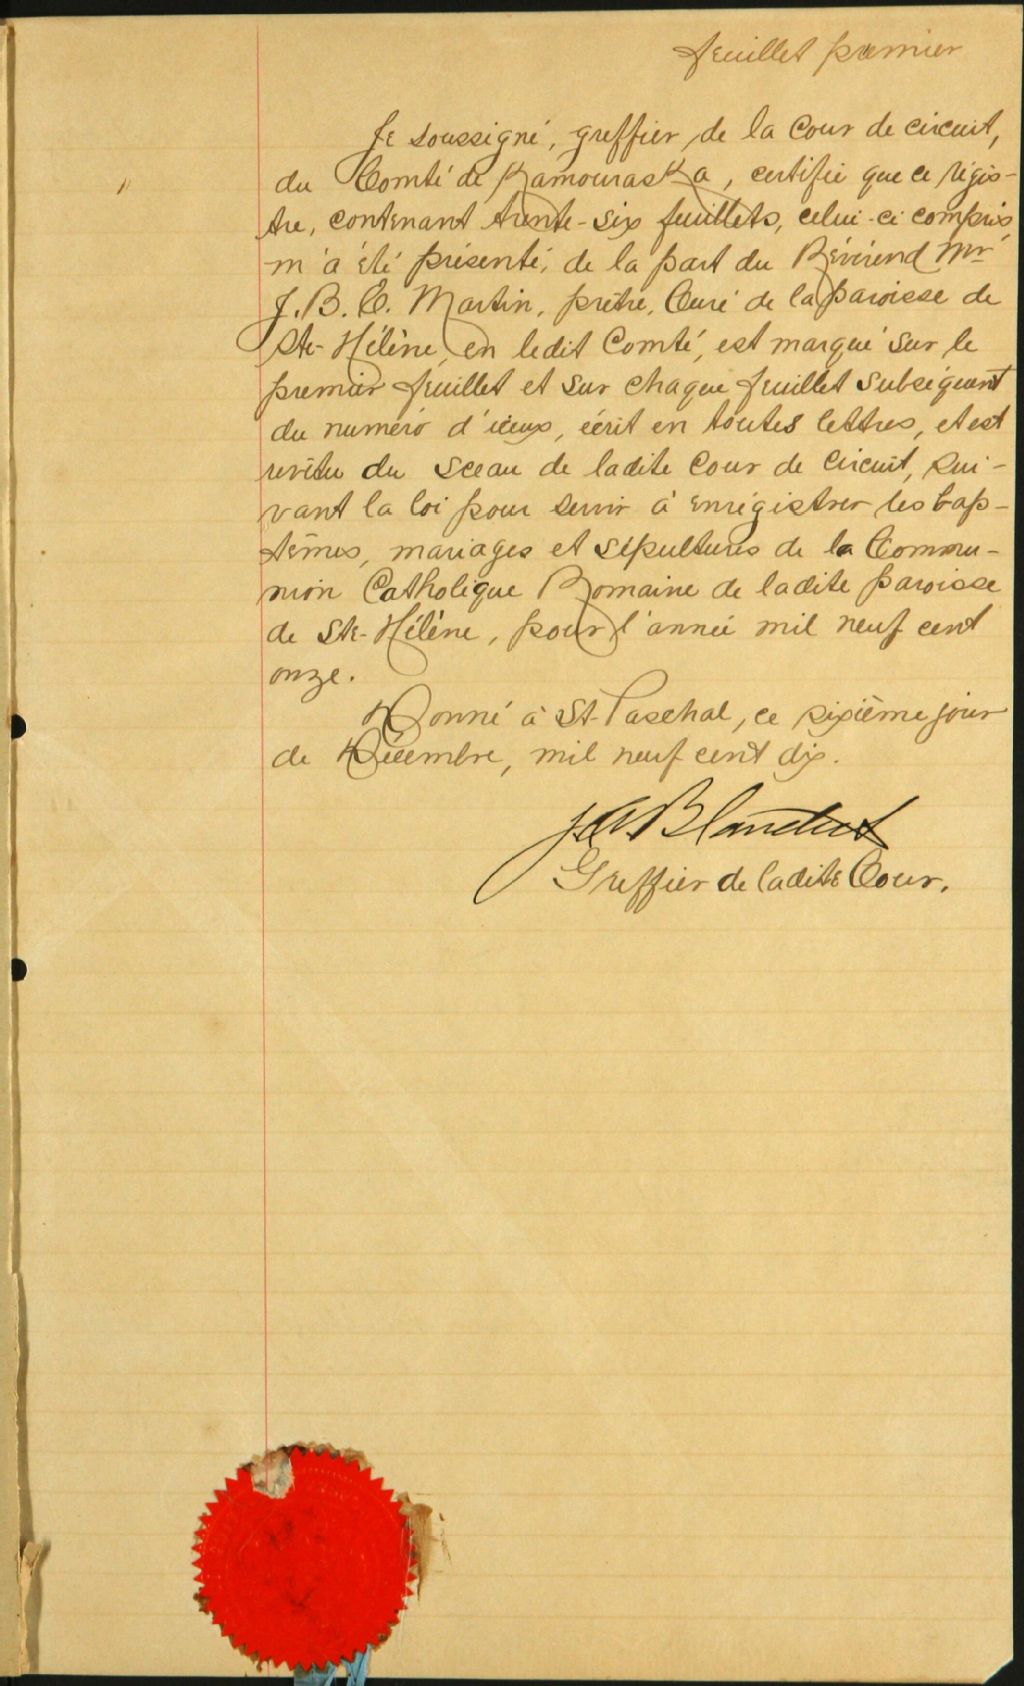 feuillet premier
Je soussigné, greffier de la Cour de circuit,
du Comté de Kamouraska, certifie que ce régis-
tre, contenant trente-six feuillets, celui-ci compris,
m'a été présenté, de la part du Révérend Mr
J. B. C. Martin, prêtre, Curé de la paroisse de
Ste-Hélène, en ledit Comté, est marqué sur le
premier feuillet et sur chaque feuillet subséquent
du numéro d'iceux, écrit en toutes lettres, et est
revêtu du sceau de ladite Cour de Circuit, sui-
vant la loi pour servir à enrégistrer les bap-
têmes, mariages et sépultures de la Commu-
nion Catholique Romaine de ladite paroisse
de Ste-Hélène, pour l'année mil neuf cent
onze.
Donné à St-Paschal, ce sixième jour
de Décembre, mil neuf cent dix.
Greffier de ladite Cour.